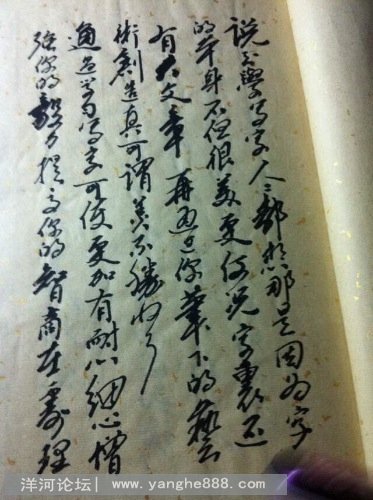 说到学写字人人都想那是因为字
的本身不但很美更何况字裏还
有大文章再通过你筆下的藝
術創造真可謂美不勝收
通过学习写字可使更加有耐心细心增
强你的毅力提高你的智商在處理
洋河论坛| www.yanghe888.com